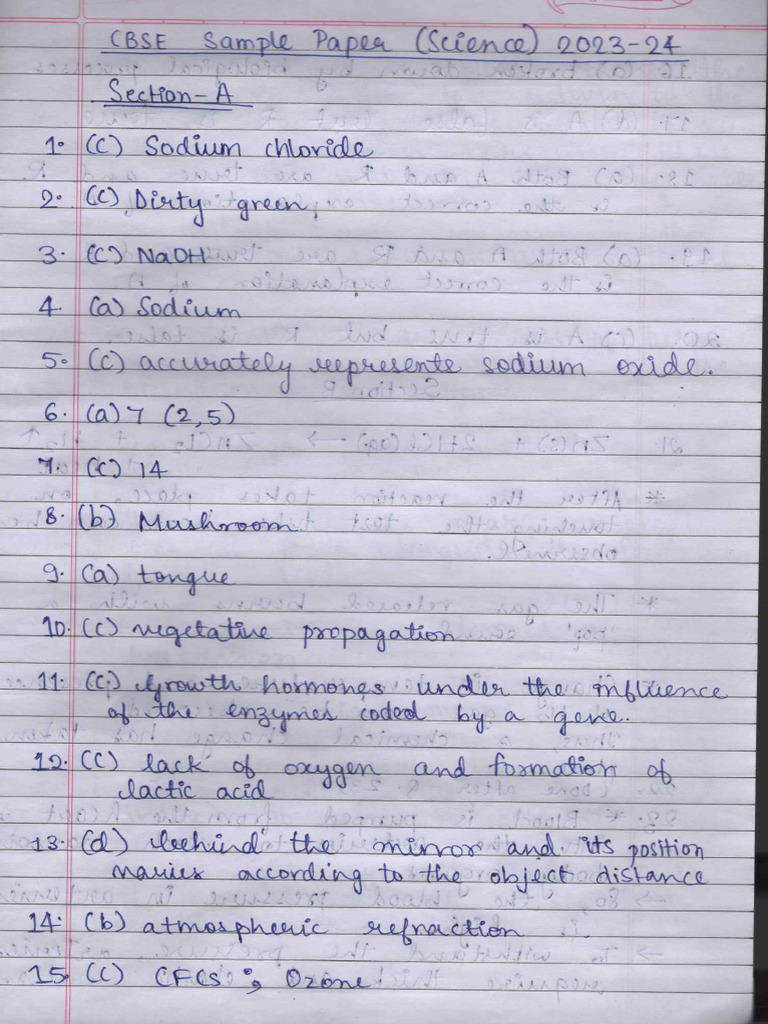 CBSE Sample Paper (Science) 2023-24
Section-A
1. (c) Sodium chloride
2. (c) Dirty green
3. (c) NaOH
4. (a) Sodium
5. (c) accurately represents sodium oxide.
6. (a) 7 (2,5)
7. (c) 14
8. (b) Mushroom
9. (a) tongue
10. (c) vegetative propagation
11. (c) Growth hormones under the influence
of the enzymes coded by a gene.
12. (c) lack of oxygen and formation of
lactic acid
13. (d) Behind the mirror and its position
varies according to the object distance
14. (b) atmospheric refraction
15. (c) CFCs ; Ozone